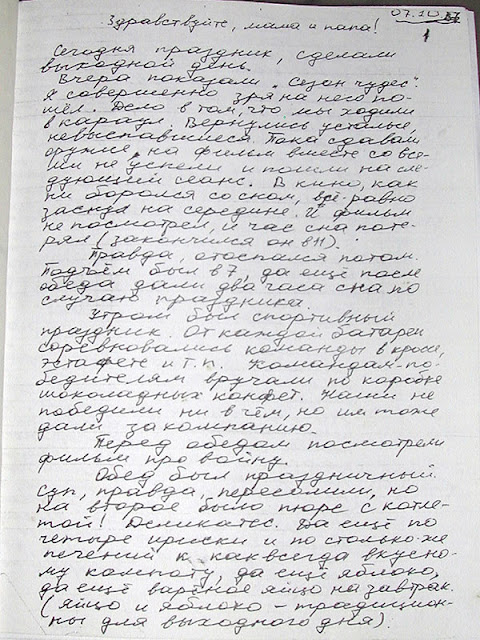 07.10.87
1
Здравствуйте, мама и папа!
Сегодня праздник, сделали
выходной день.
Вчера показали „Сезон чудес".
Я совершенно зря на него по-
шёл. Дело в том, что мы ходили
в караул. Вернулись усталые,
невыспавшиеся. Пока сдавали
оружие, на фильм вместе со все-
ми не успели и пошли на сле-
дующий сеанс. В кино, как
ни боролся со сном, всё равно
заснул на середине. И фильм
не посмотрел, и час сна поте-
рял (закончился он в 11).
Правда, отоспался потом.
Подъём был в 7, да ещё после
обеда дали два часа сна по
случаю праздника.
Утром был спортивный
праздник. От каждой батареи
соревновались команды в кроссе,
эстафете и т.п. Командам-по-
бедителям вручали по коробке
шоколадных конфет. Наши не
победили ни в чём, но им тоже
дали за компанию.
Перед обедом посмотрели
фильм про войну.
Обед был праздничный.
Суп, правда, пересолили, но
на второе было пюре с котле-
той! Деликатес. Да ещё по
четыре ириски и по столько же
печений к как всегда вкусно-
му компоту, да ещё яблоко,
да ещё варёное яйцо на завтрак.
(яйцо и яблоко - традицион-
ны для выходного дня).